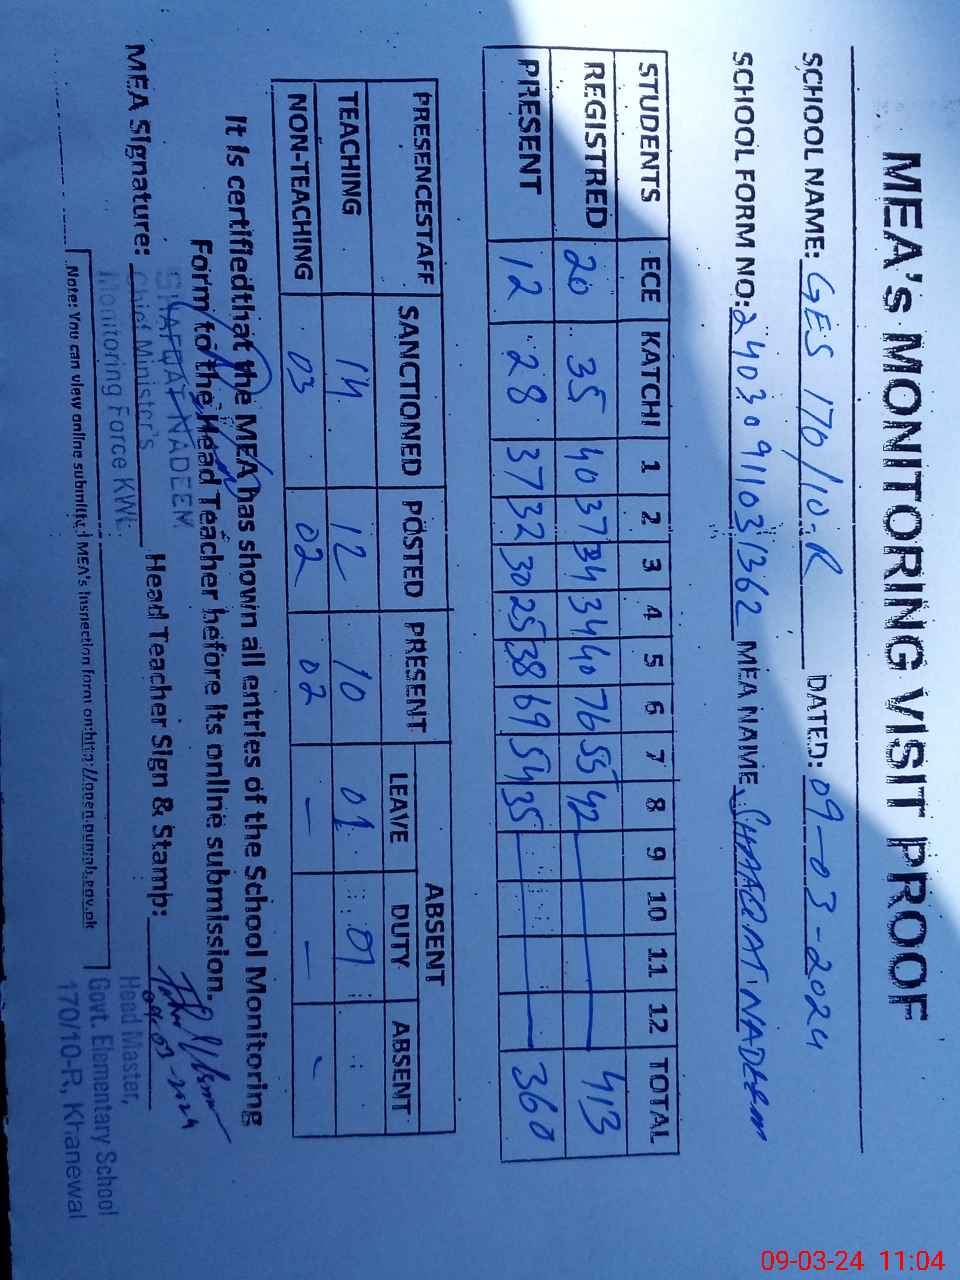 MEA's MONITORING VISIT PROOF
SCHOOL NAME: GES 170/10-R DATED: 09-03-2024
SCHOOL FORM NO: 24030911031362 MEA NAME SHAFQAT NADEEM
STUDENTS ECE KATCHI 1 2 3 4 5 6 7 8 9 10 11 12 TOTAL
REGISTRED 20 35 40 37 34 34 40 76 55 42 413
PRESENT 12 28 37 32 30 25 38 69 54 35 360
PRESENCESTAFF SANCTIONED POSTED PRESENT ABSENT
LEAVE DUTY ABSENT
TEACHING 14 12 10 01 01
NON-TEACHING 03 02 02 - - -
It is certifiedthat the MEA has shown all entries of the School Monitoring
Form to the Head Teacher before its online submission.
MEA Signature: Head Teacher Sign & Stamb:
SHAFQAT NADEEM
Chief Minister's
Monitoring Force KWL
09-03-2024
Head Master,
Govt. Elementary School
170/10-R, Khanewal
Note: You can view online submitted MEA's Inspection form on:http://open.punjab.gov.pk
09-03-24 11:04